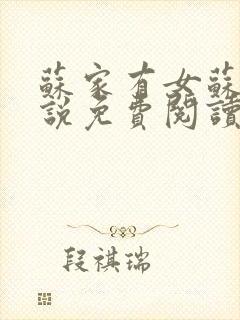 蘇家有女蘇
說免費閱讀
段祺瑞